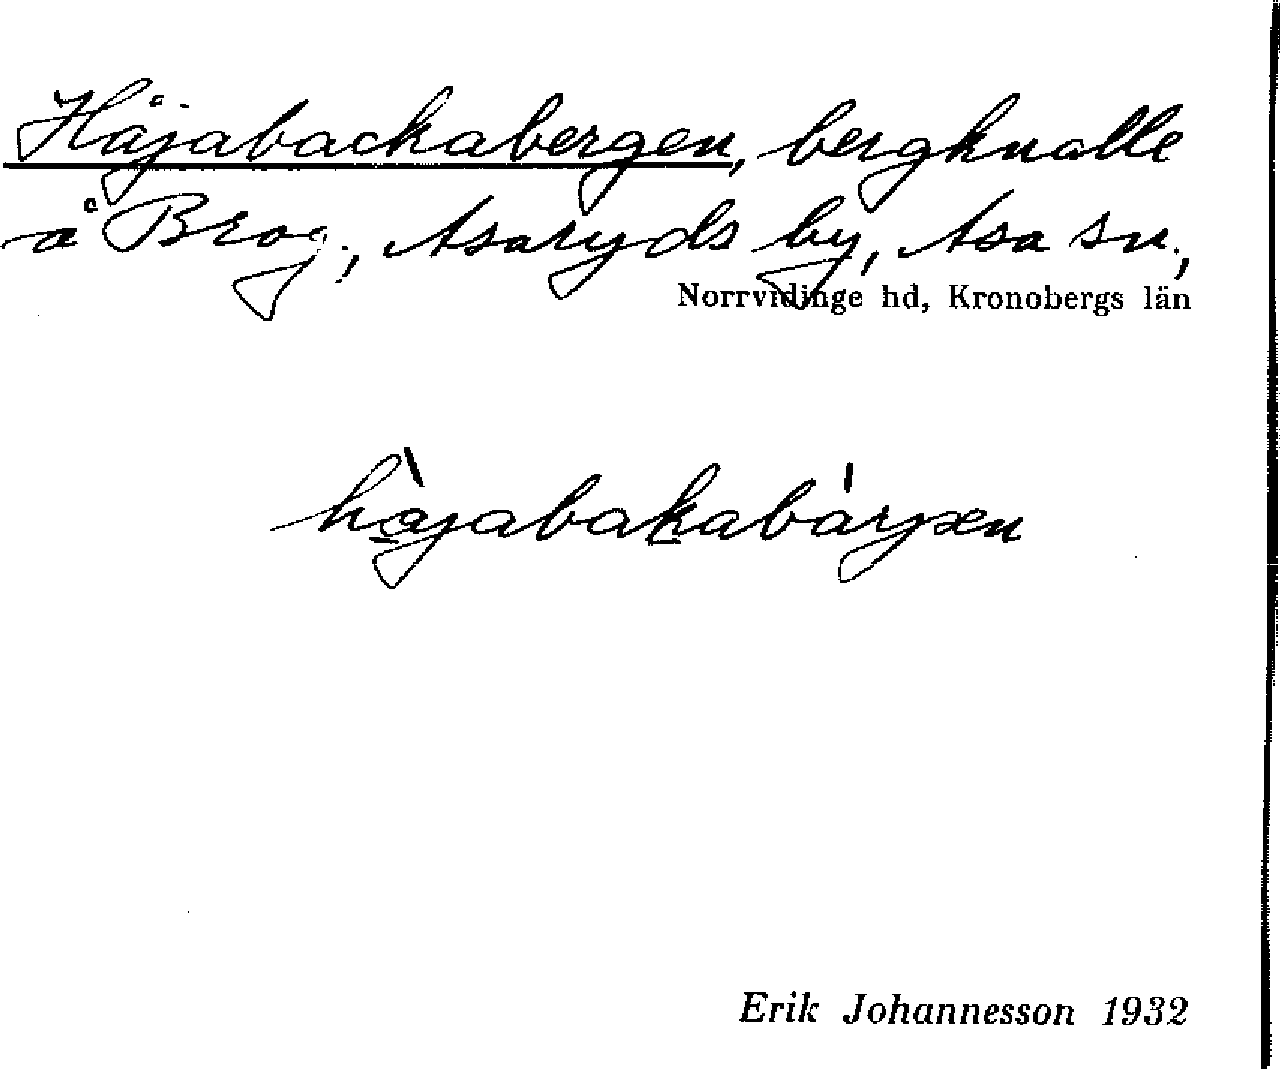 Håjabackabergen, bergknalle
å Brog., Asaryds by, Asa sn.,
Norrvidinge hd, Kronobergs län
håjabakabärjen
Erik Johannesson 1932